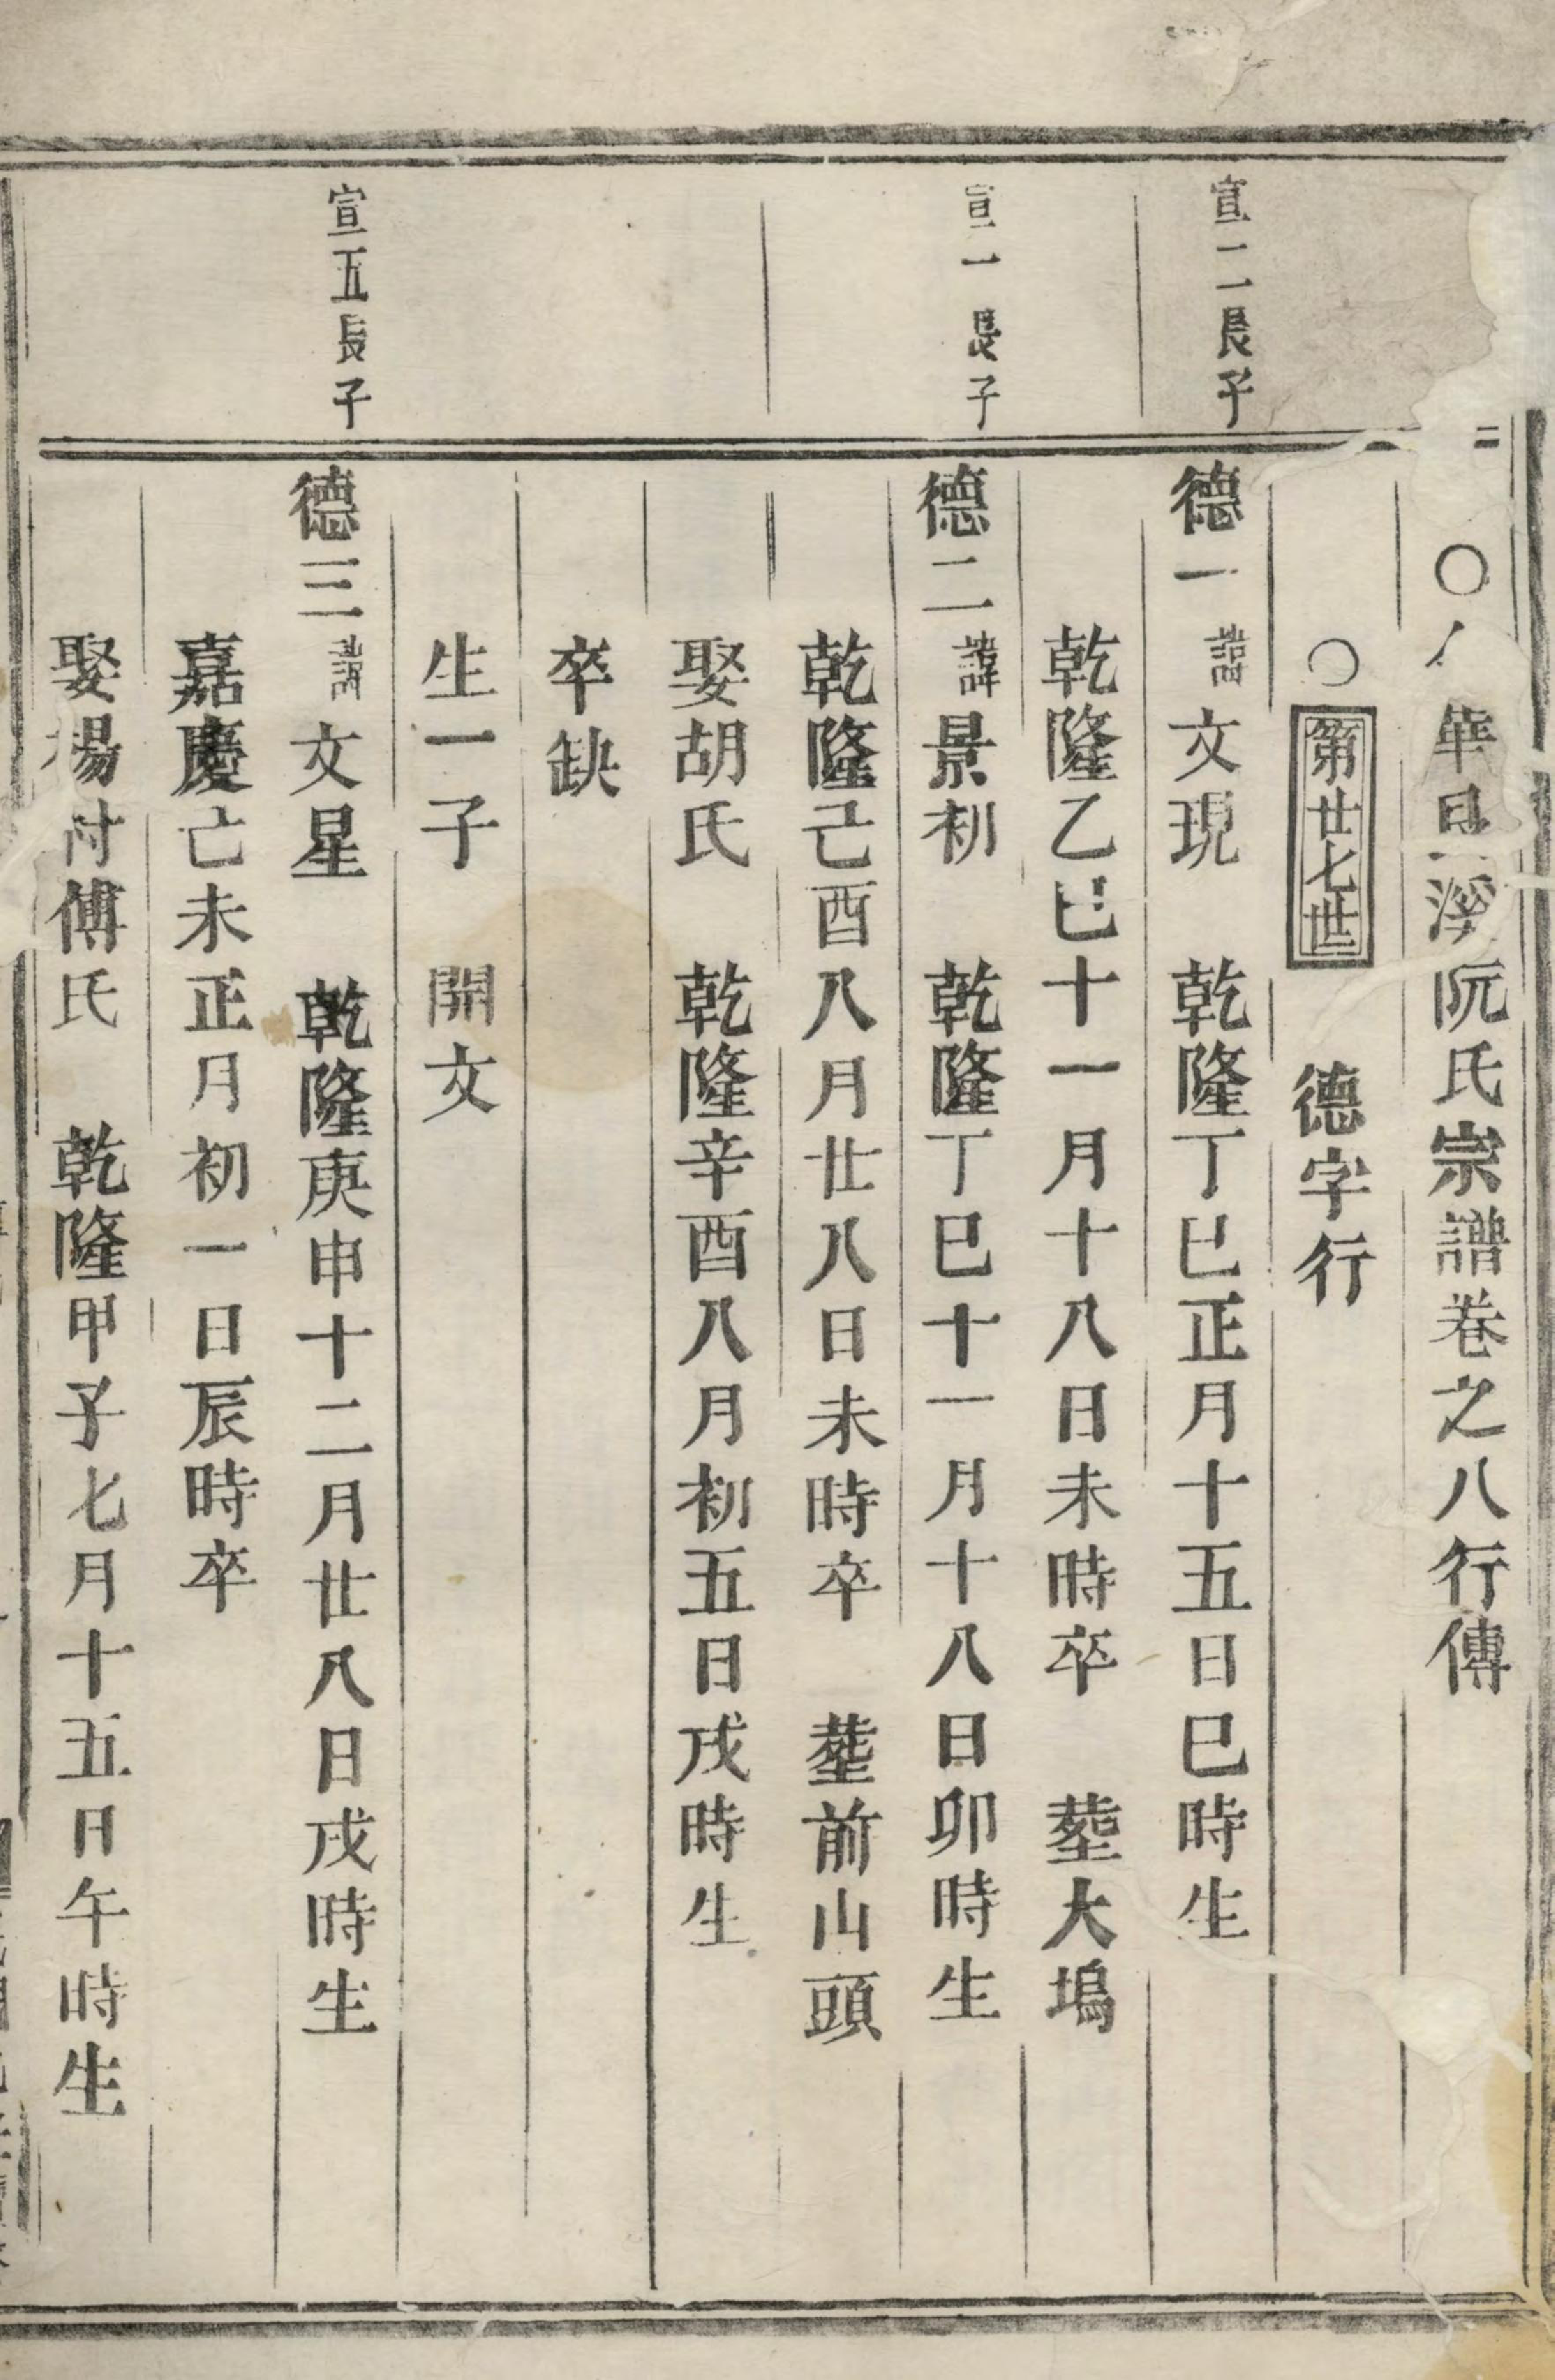 華 溪阮氏宗譜卷之八行傳
第廿七世 德字行
宣二長子
德一 諱文現 乾隆丁巳正月十五日巳時生
乾隆乙巳十一月十八日未時卒 塟大塢
宣一長子
德二 諱景初 乾隆丁巳十一月十八日卯時生
乾隆己酉八月廿八日未時卒 塟前山頭
娶胡氏 乾隆辛酉八月初五日戌時生
卒缺
生一子 開文
宣五長子
德三 諱文星 乾隆庚申十二月廿八日戌時生
嘉慶己未正月初一日辰時卒
娶楊村傅氏 乾隆甲子七月十五日午時生